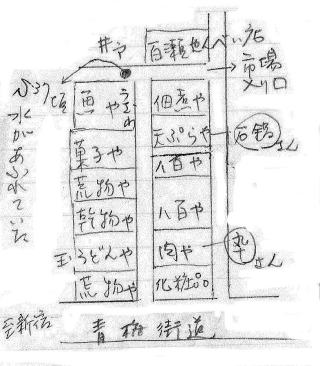 井戸
百瀬せんべい店
→市場入口
S37頃
水があふれていた
魚や
菓子や
荒物や
乾物や
玉うどんや
荒物や
佃煮や
天ぷらや
八百や
八百や
肉や
化粧品
さん
さん
至新宿
青梅街道